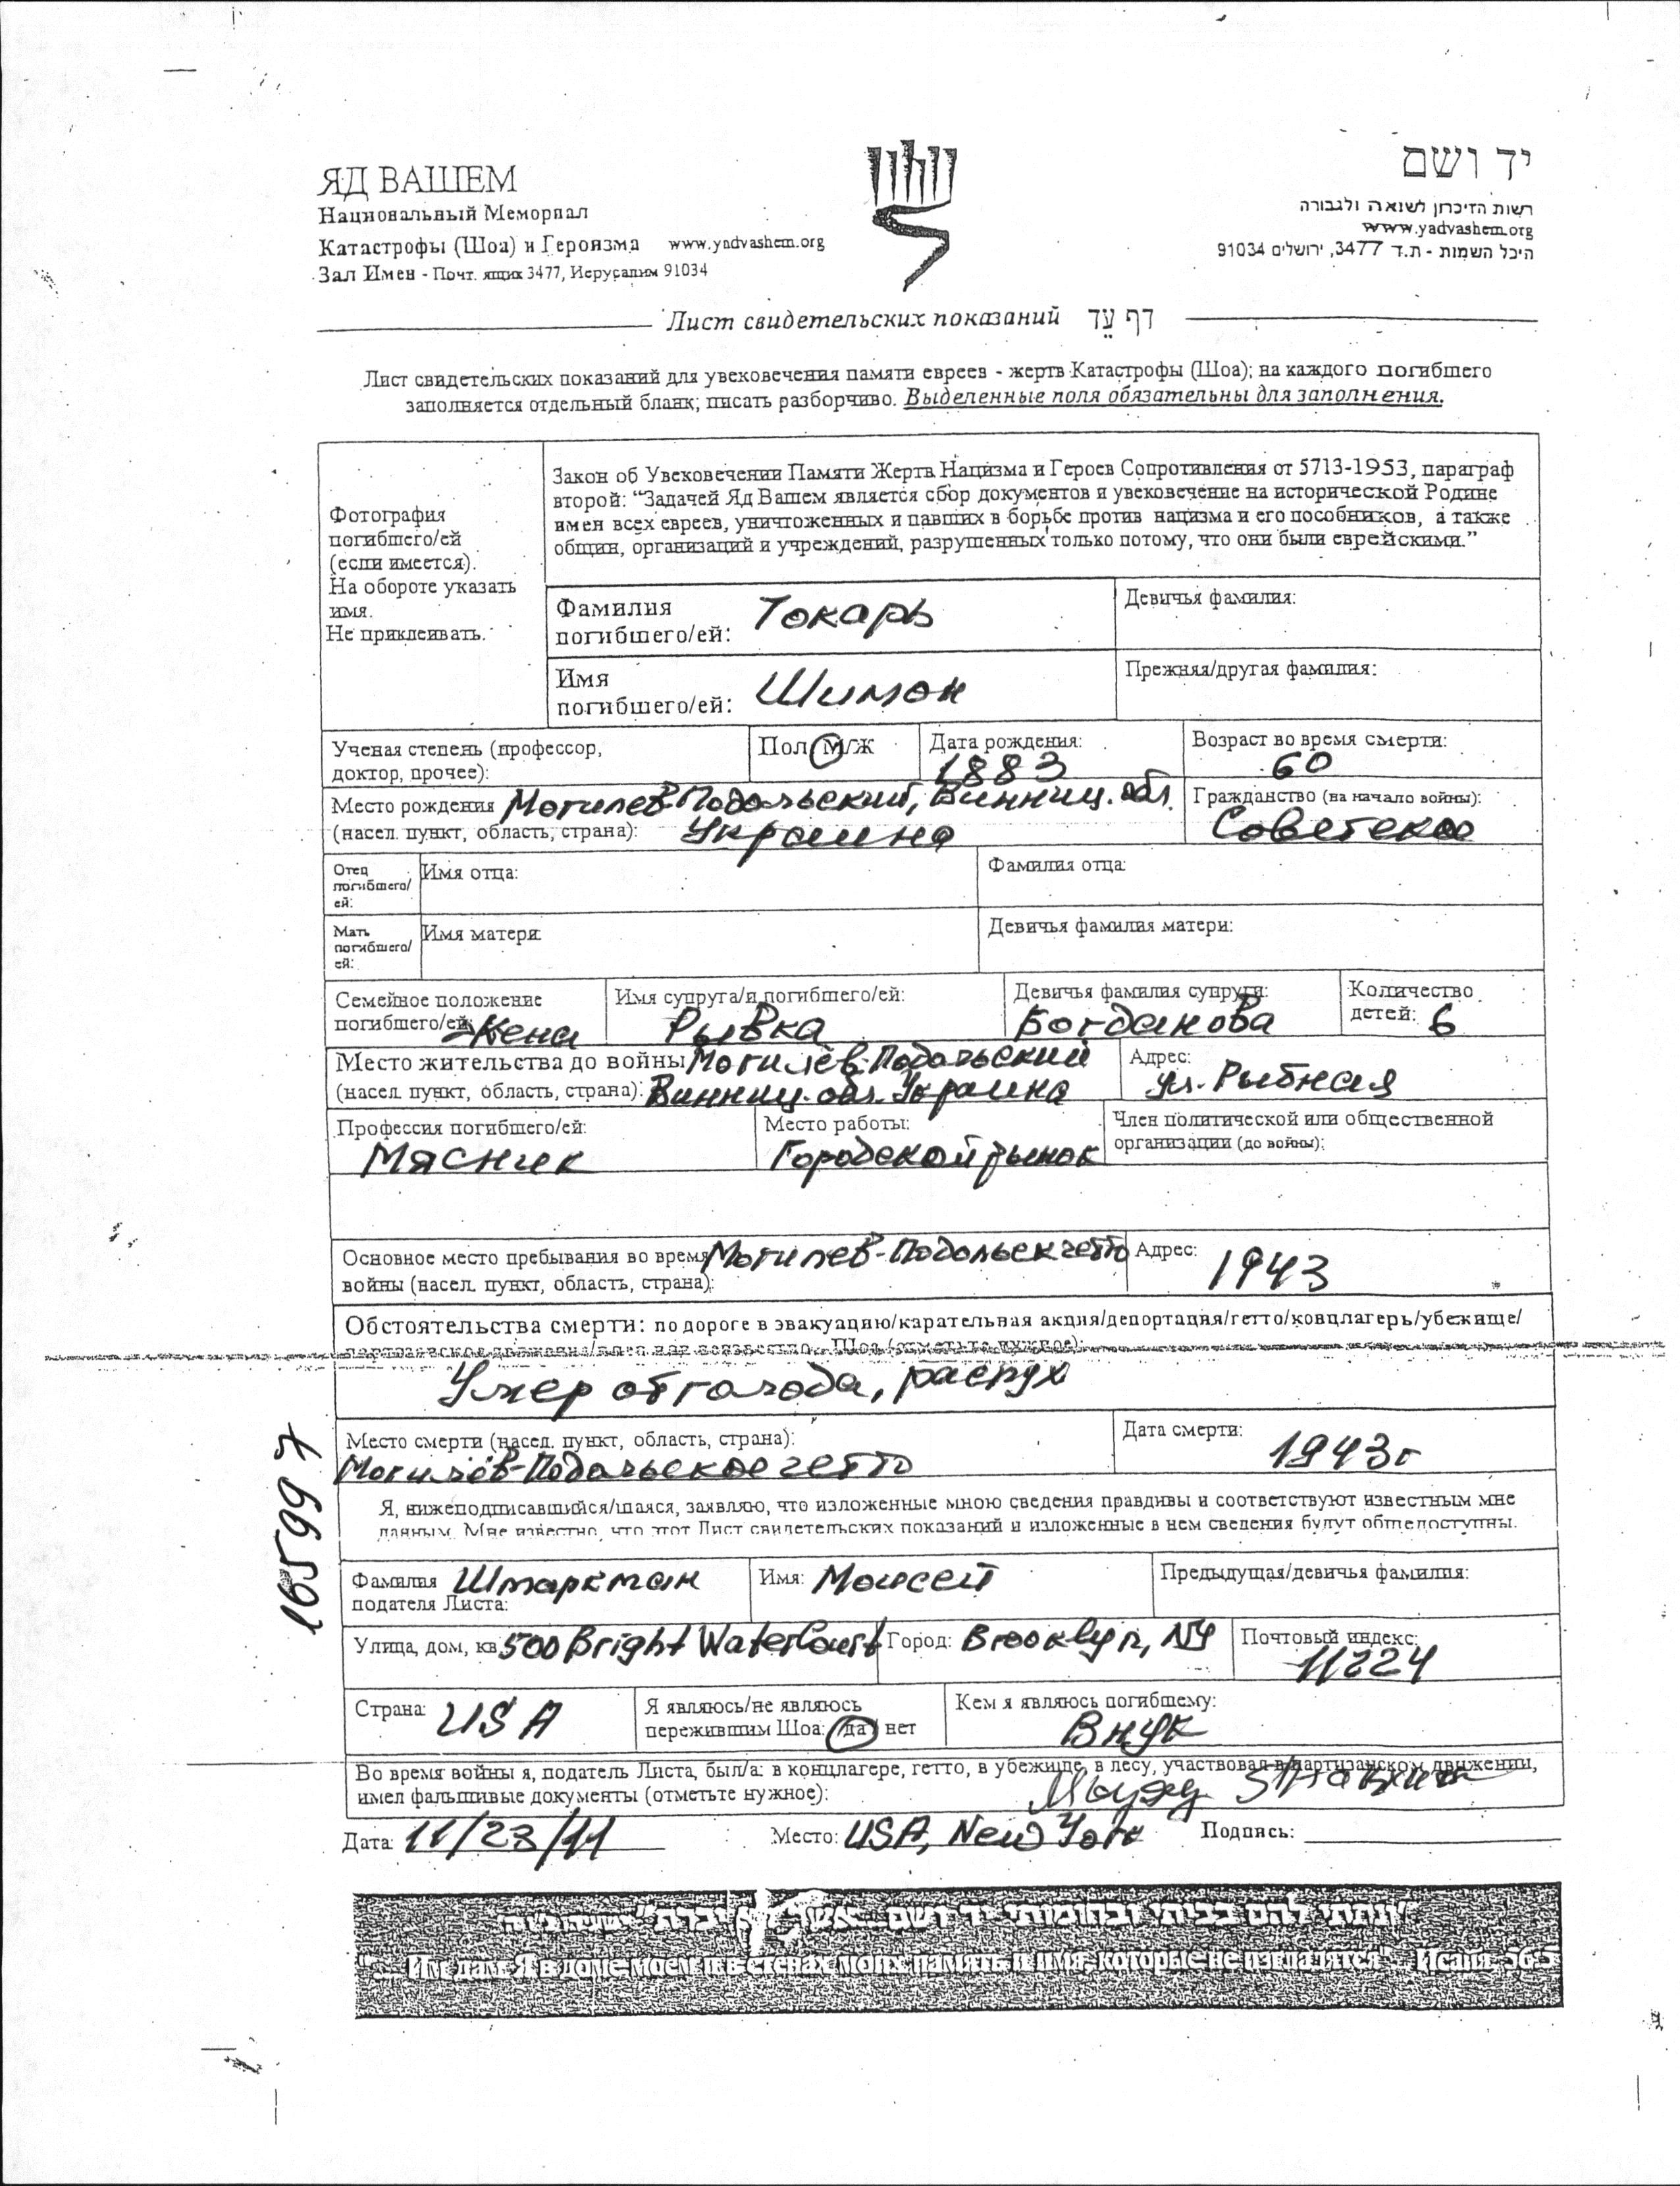 ЯД ВАШЕМ
Национальный Мемориал
Катастрофы (Шоа) и Героизма www.yadvashem.org
Зал Имен - Почт. ящик 3477, Иерусалим 91034
יד ושם
רשות הזיכרון לשואה ולגבורה
www.yadvashem.org
היכל השמות - ת.ד 3477, ירושלים 91034
Лист свидетельских показаний דף עֵד
Лист свидетельских показаний для увековечения памяти евреев - жертв Катастрофы (Шоа); на каждого погибшего
заполняется отдельный бланк; писать разборчиво. Выделенные поля обязательны для заполнения.
Фотография
погибшего/ей
(если имеется).
На обороте указать
имя.
Не приклеивать.
Закон об Увековечении Памяти Жертв Нацизма и Героев Сопротивления от 5713-1953, параграф
второй: “Задачей Яд Вашем является сбор документов и увековечение на исторической Родине
имен всех евреев, уничтоженных и павших в борьбе против нацизма и его пособников, а также
общин, организаций и учреждений, разрушенных только потому, что они были еврейскими.”
Фамилия
погибшего/ей: Токарь
Девичья фамилия:
Имя
погибшего/ей: Шимон
Прежняя/другая фамилия:
Ученая степень (профессор,
доктор, прочее):
Пол М/Ж
Дата рождения:
1883
Возраст во время смерти:
60
Место рождения Могилев-Подольский, Винниц. обл.
(насел. пункт, область, страна): Украина
Гражданство (на начало войны):
Советское
Отец
погибшего/
ей:
Имя отца:
Фамилия отца:
Мать
погибшего/
ей:
Имя матери:
Девичья фамилия матери:
Семейное положение
погибшего/ей: Жена
Имя супруга/и погибшего/ей:
Рывка
Девичья фамилия супруги:
Богданова
Количество
детей: 6
Место жительства до войны Могилёв-Подольский
(насел. пункт, область, страна): Винниц. обл. Украина
Адрес:
ул. Рыбная
Профессия погибшего/ей:
Мясник
Место работы:
Городской рынок
Член политической или общественной
организации (до войны):
Основное место пребывания во время Могилев-Подольск гетто
войны (насел. пункт, область, страна):
Адрес:
1943
Обстоятельства смерти: по дороге в эвакуацию/карательная акция/депортация/гетто/концлагерь/убежище/
Умер от голода, распух
Место смерти (насел. пункт, область, страна):
Могилёв-Подольское гетто
Дата смерти:
1943г
Я, нижеподписавшийся/шаяся, заявляю, что изложенные мною сведения правдивы и соответствуют известным мне
данным. Мне известно, что этот Лист свидетельских показаний и изложенные в нем сведения будут общедоступны.
165997
Фамилия Штаркман
подателя Листа:
Имя: Моисей
Предыдущая/девичья фамилия:
Улица, дом, кв. 500 Bright Water Court
Город: Brooklyn, NY
Почтовый индекс:
11224
Страна: USA
Я являюсь/не являюсь
пережившим Шоа: да нет
Кем я являюсь погибшему:
Внук
Во время войны я, податель Листа, был/а: в концлагере, гетто, в убежище, в лесу, участвовал в партизанском движении,
имел фальшивые документы (отметьте нужное):
Дата: 11/23/11
Место: USA, New York
Подпись:
"ונתתי להם בביתי ובחומותי יד ושם... אשר לא יכרת" ישעיהו נ"ו ה'
"... Им дам Я в доме моем и в стенах моих память и имя, которые не изгладятся". Исаия 56:5